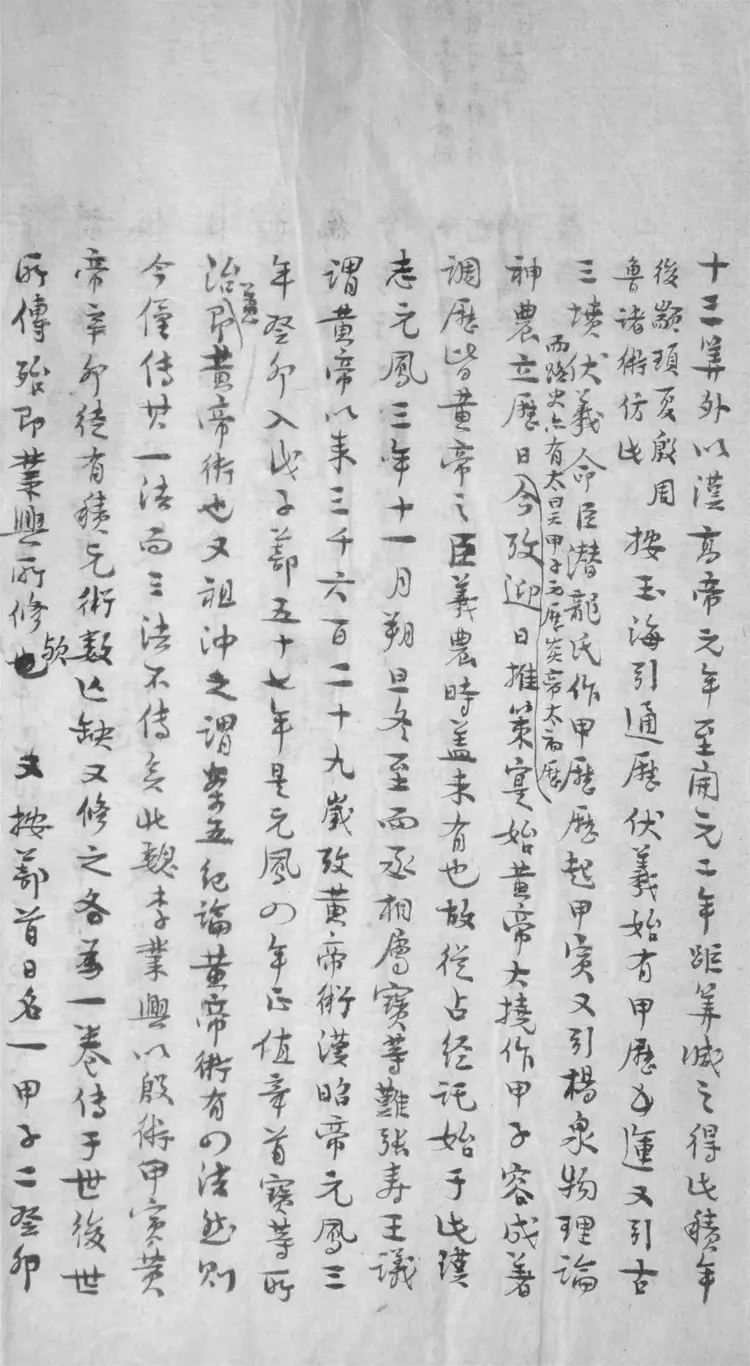 十三算外以漢高帝元年至開元二年距算減之得此積年
後顓頊夏殷周
魯諸術仿此
按玉海引通歷伏羲始有甲歷五運又引古
三墳伏羲命臣潛龍氏作甲歷歷起甲寅又引楊泉物理論
而路史亦有太昊甲子元歷炎帝太初歷
神農立歷日今攷迎日推策寔始黃帝大撓作甲子容成著
調歷皆黃帝之臣羲農時蓋未有也故從占經託始于此漢
志元鳳三年十一月朔旦冬至而丞相屬寶等難張壽王議
謂黃帝以來三千六百二十九歲攷黃帝術漢昭帝元鳳三
年癸卯入戊子蔀五十七年是元鳳四年正值章首寶等所
治蓋即黃帝術也又祖沖之謂案五紀論黃帝術有四法然則
今僅傳其一法而三法不傳矣北魏李業興以殷術甲寅黃
帝辛卯徒有積元術數亡缺又修之各為一卷傳于世後世
所傳殆即業興所修歟 又按蔀首日名一甲子二癸卯